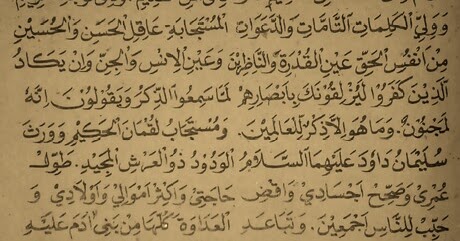 وَوَلِيِّ الْكَلِمَاتِ التَّامَّاتِ وَالدَّعَوَاتِ الْمُسْتَجَابَةِ عَاقِلِ الْحَسَنِ وَالْحُسَيْنِ
مِنْ اَنْفُسِ الْحَقِّ عَيْنِ الْقُدْرَةِ وَالنَّاظِرِيْنَ وَعَيْنِ الْاِنْسِ وَالْجِنِّ وَاِنْ يَكَادُ
الَّذِيْنَ كَفَرُوْا لَيُزْلِقُوْنَكَ بِاَبْصَارِهِمْ لَمَّا سَمِعُوا الذِّكْرَ وَيَقُوْلُوْنَ اِنَّهُ
لَمَجْنُوْنٌ. وَمَا هُوَ اِلَّا ذِكْرٌ لِلْعَالَمِيْنَ. وَمُسْتَجَابُ لُقْمَانَ الْحَكِيْمِ وَوَرِثَ
سُلَيْمَانُ دَاوُدَ عَلَيْهِمَا السَّلَامُ الْوَدُوْدُ ذُو الْعَرْشِ الْمَجِيْدِ. طَوِّلْ
عُمْرِيْ وَصَحِّحْ اَجْسَادِيْ وَاقْضِ حَاجَتِيْ وَاَكْثِرْ اَمْوَالِيْ وَاَوْلَادِيْ وَ
حَبِّبْ لِلنَّاسِ اَجْمَعِيْنَ. وَتَبَاعَدِ الْعَدَاوَةَ كُلَّهَا مِنْ بَنِيْ اٰدَمَ عَلَيْهِ